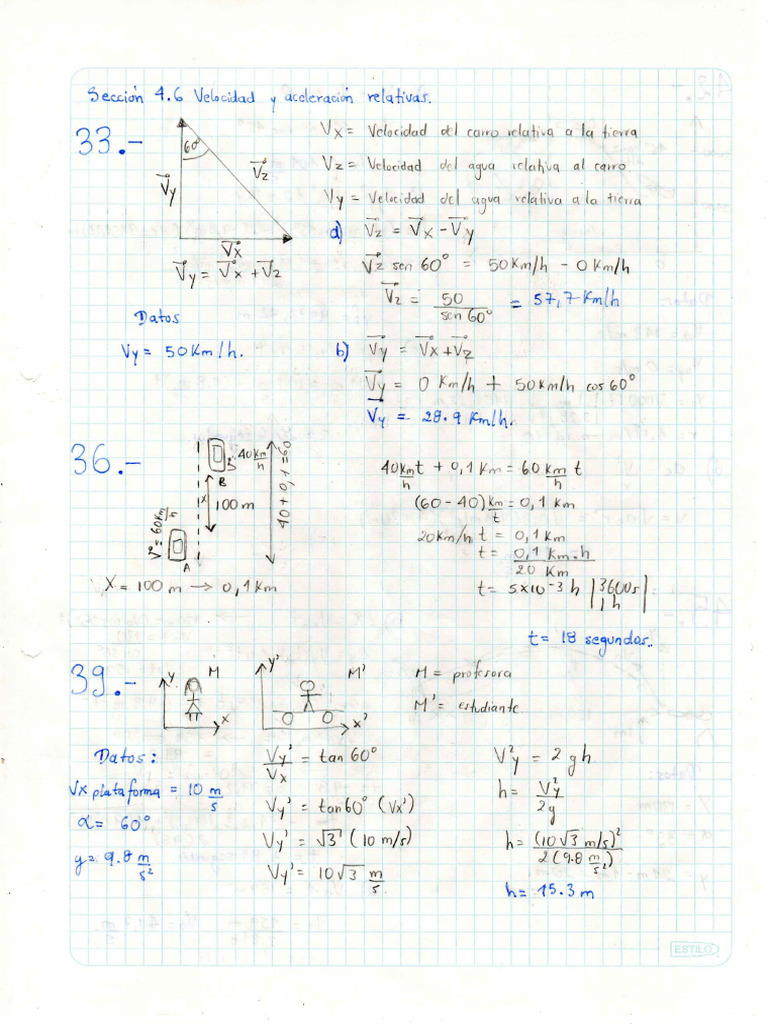 Sección 4.6 Velocidad y aceleración relativas.
33.-
60°
V⃗y
V⃗z
V⃗x
V⃗y = V⃗x + V⃗z
Datos
Vy = 50 Km/h.
Vx = Velocidad del carro relativa a la tierra
Vz = Velocidad del agua relativa al carro
Vy = Velocidad del agua relativa a la tierra
a) V⃗z = V⃗x - V⃗y
V⃗z sen 60° = 50 Km/h - 0 Km/h
V⃗z = 50/sen 60° = 57,7 Km/h
b) V⃗y = V⃗x + V⃗z
V⃗y = 0 Km/h + 50 Km/h cos 60°
V⃗y = 28.9 Km/h.
36.-
V = 60 Km/h
A
B
40 Km/h
x
100 m
40 + 0,1 = 60
X = 100 m → 0,1 Km
40 Km/h t + 0,1 Km = 60 Km/h t
(60 - 40) Km/t = 0,1 Km
20 Km/h t = 0,1 Km
t = 0,1 Km · h / 20 Km
t = 5x10⁻³ h | 3600 s / 1 h |
t = 18 segundos.
39.-
y M
x
y' M'
x'
M = profesora
M' = estudiante
Datos:
Vx plataforma = 10 m/s
α = 60°
g = 9.8 m/s²
Vy'/Vx = tan 60°
Vy' = tan 60° (Vx')
Vy' = √3 (10 m/s)
Vy' = 10√3 m/s
V²y = 2 gh
h = V²y/2g
h = (10√3 m/s)²/2(9.8 m/s²)
h = 15.3 m
ESTILO